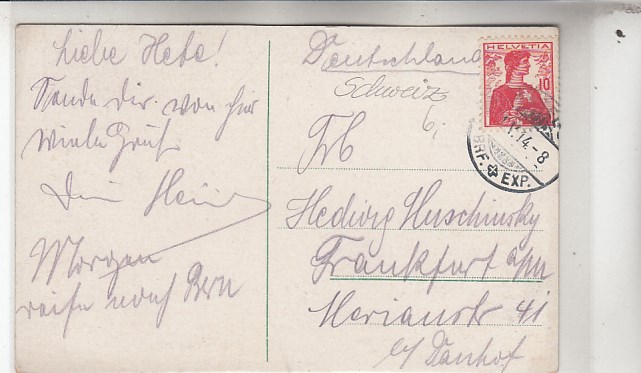 Liebe Hete!
Sende dir von hier
viele Grüße
Dein
Morgen
reise nach Bern
Deutschland
Schweiz
HELVETIA
10
14.-8
BHF. EXP.
Frl
Hedwig Huschinsky
Frankfurt a/M
Merianstr 41
b/